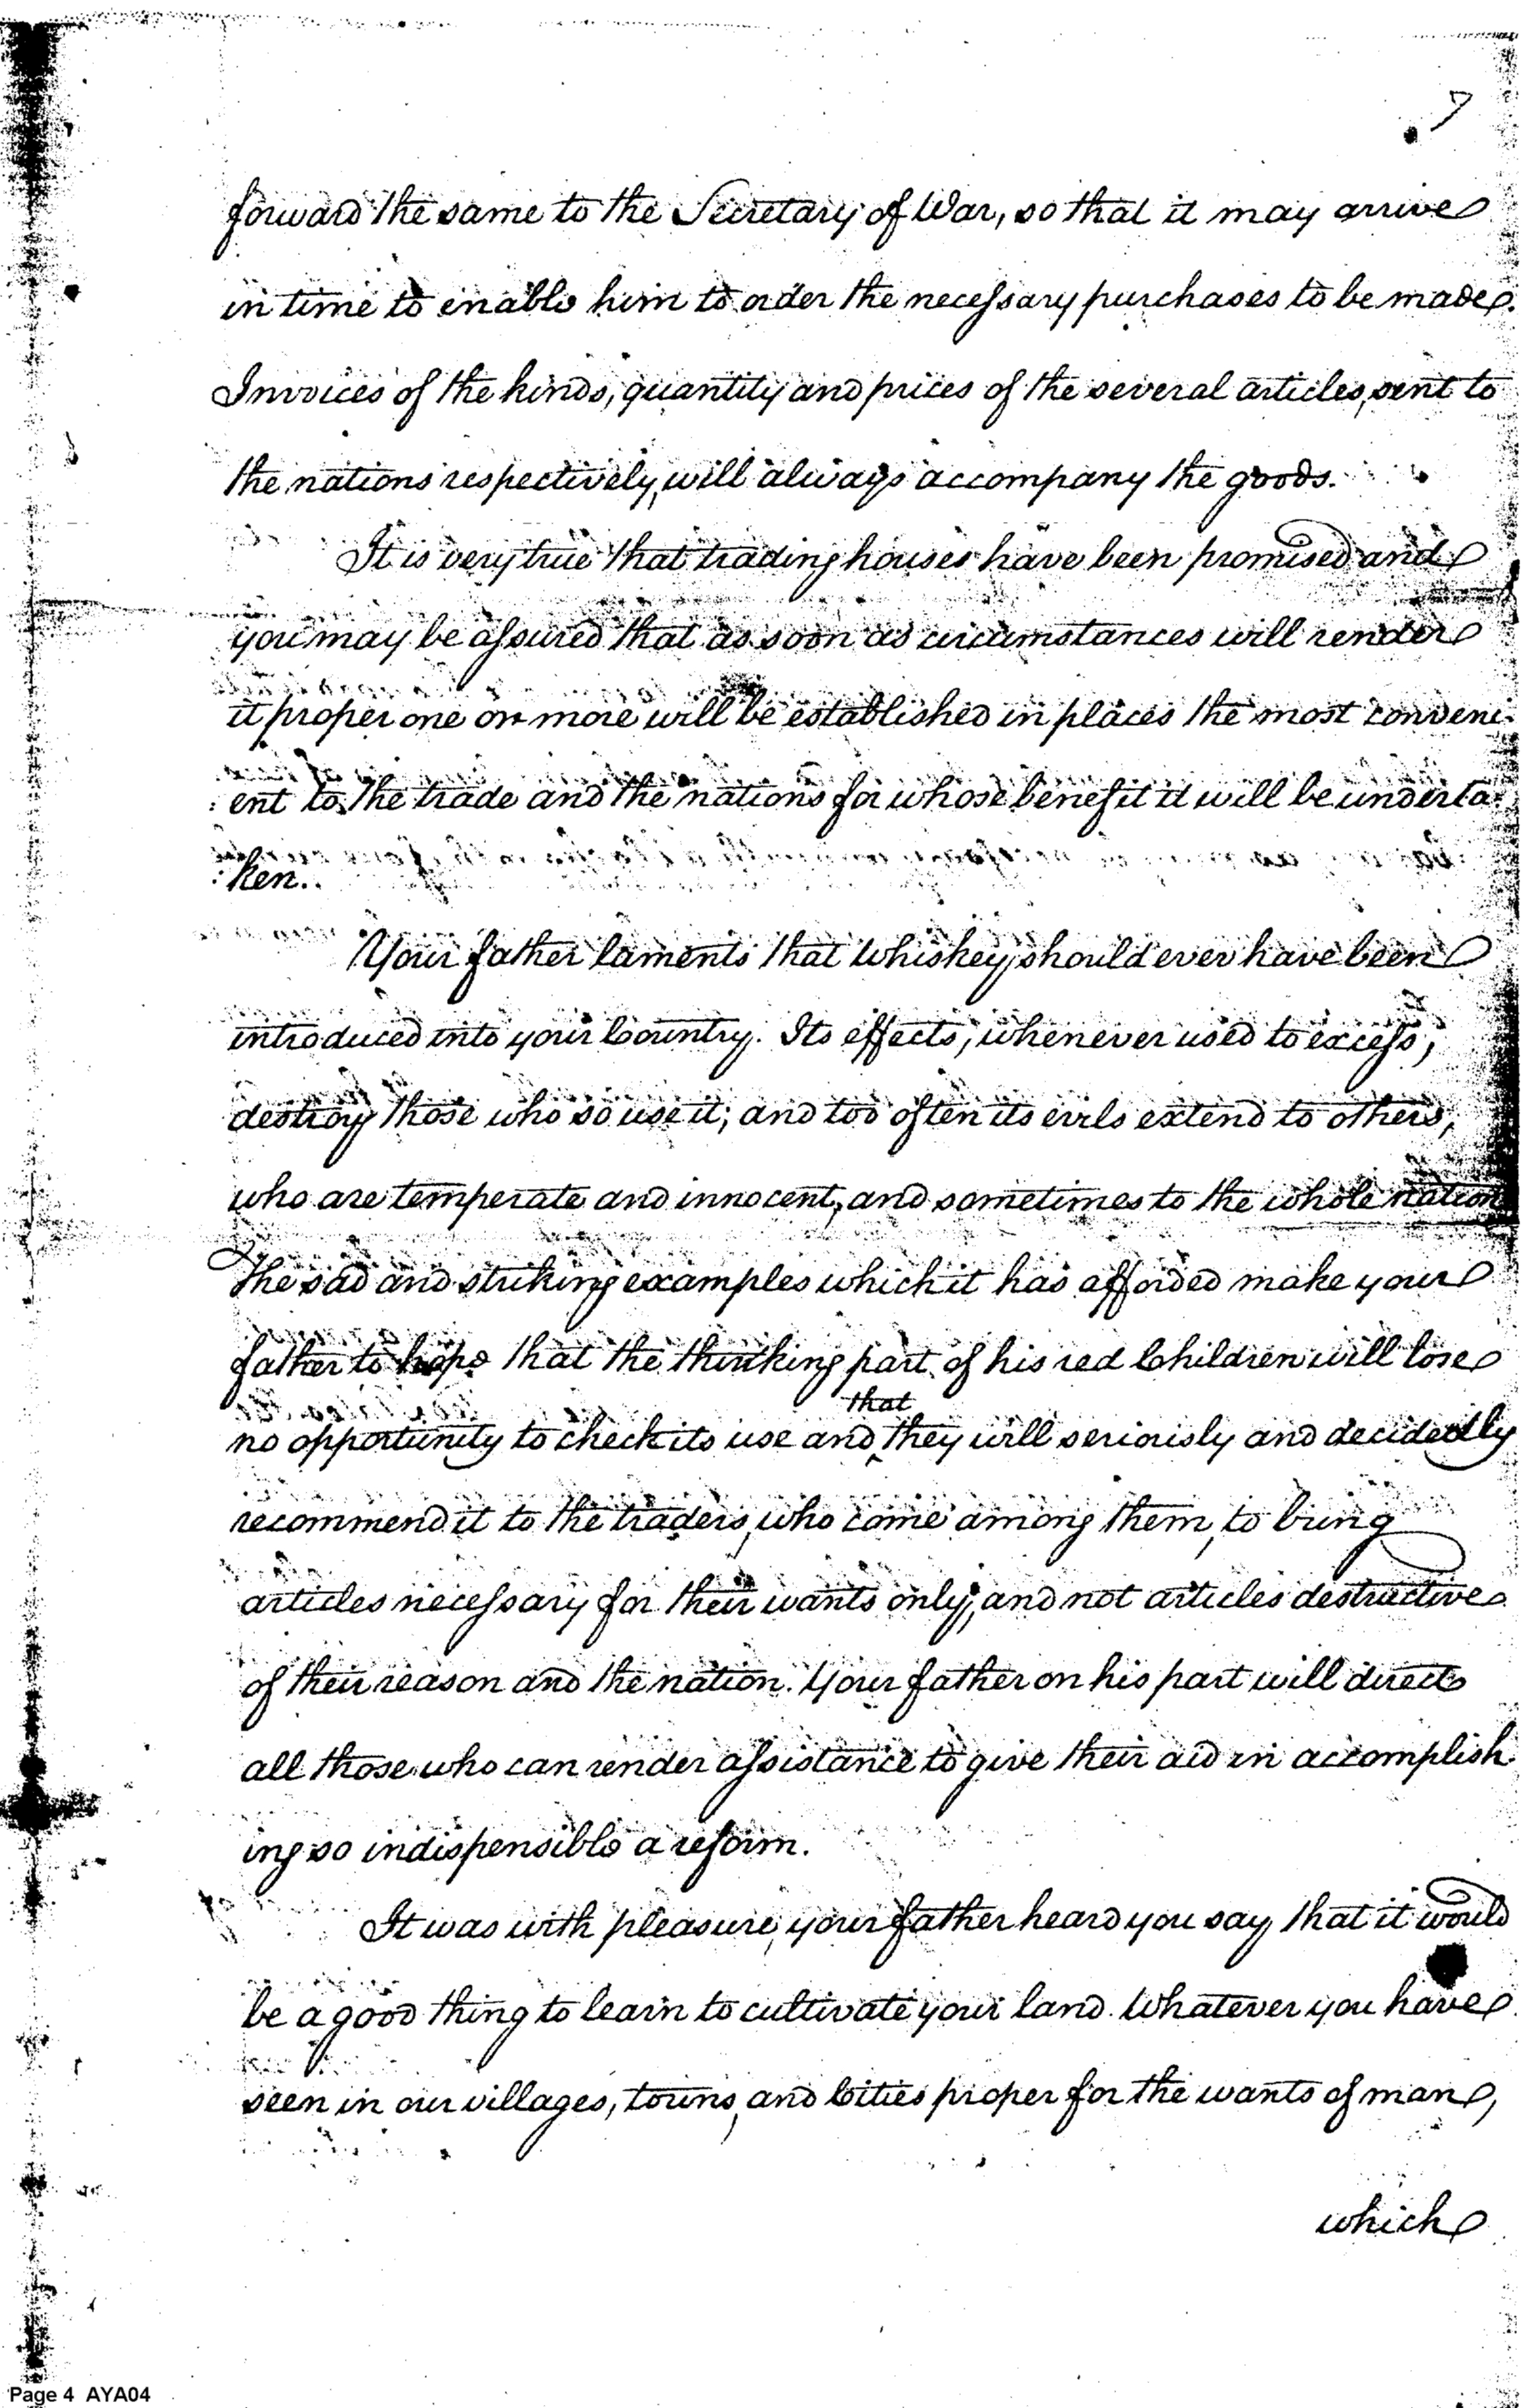 7
forward the same to the Secretary of War, so that it may arrive
in time to enable him to order the necessary purchases to be made.
Invoices of the kinds, quantity and prices of the several articles, sent to
the nations respectively, will always accompany the goods.
It is very true that trading houses have been promised and
you may be assured that as soon as circumstances will render
it proper one or more will be established in places the most conveni-
:ent to the trade and the nations for whose benefit it will be underta:
:ken.
Your father laments that Whiskey, should ever have been
introduced into your Country. Its effects, whenever used to excess,
destroy those who so use it; and too often its evils extend to others,
who are temperate and innocent, and sometimes to the whole nation
The sad and striking examples which it has afforded make your
father to hope that the thinking part of his red Children will lose
that
no opportunity to check its use and ‸ they will seriously and decidedly
recommend it to the traders, who come among them, to bring
articles necessary for their wants only, and not articles destructive
of their reason and the nation. Your father on his part will direct
all those who can render assistance to give their aid in accomplish
ing so indispensible a reform.
It was with pleasure, your father heard you say, that it would
be a good thing to learn to cultivate your land. Whatever you have
seen in our villages, towns, and Cities proper for the wants of man,
which
Page 4 AYA04